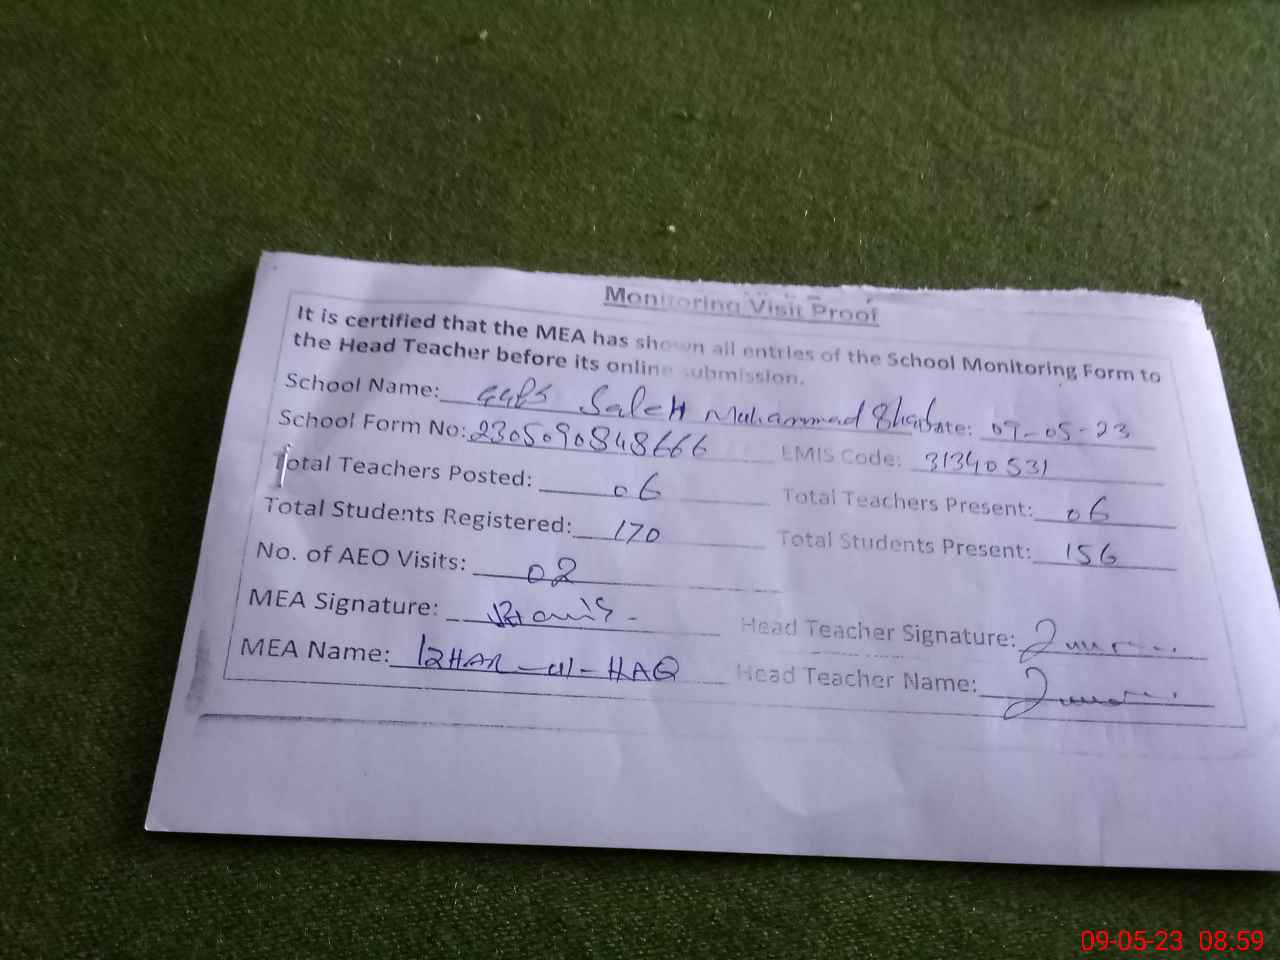 Monitoring Visit Proof
It is certified that the MEA has shown all entries of the School Monitoring Form to
the Head Teacher before its online submission.
School Name: GGPS Saleh Muhammad Date: 09-05-23
School Form No: 2305090848666 EMIS Code: 31340531
Total Teachers Posted: 06 Total Teachers Present: 06
Total Students Registered: 170 Total Students Present: 156
No. of AEO Visits: 02
MEA Signature: Head Teacher Signature:
MEA Name: IZHAR-ul-HAQ Head Teacher Name:
09-05-23 08:59